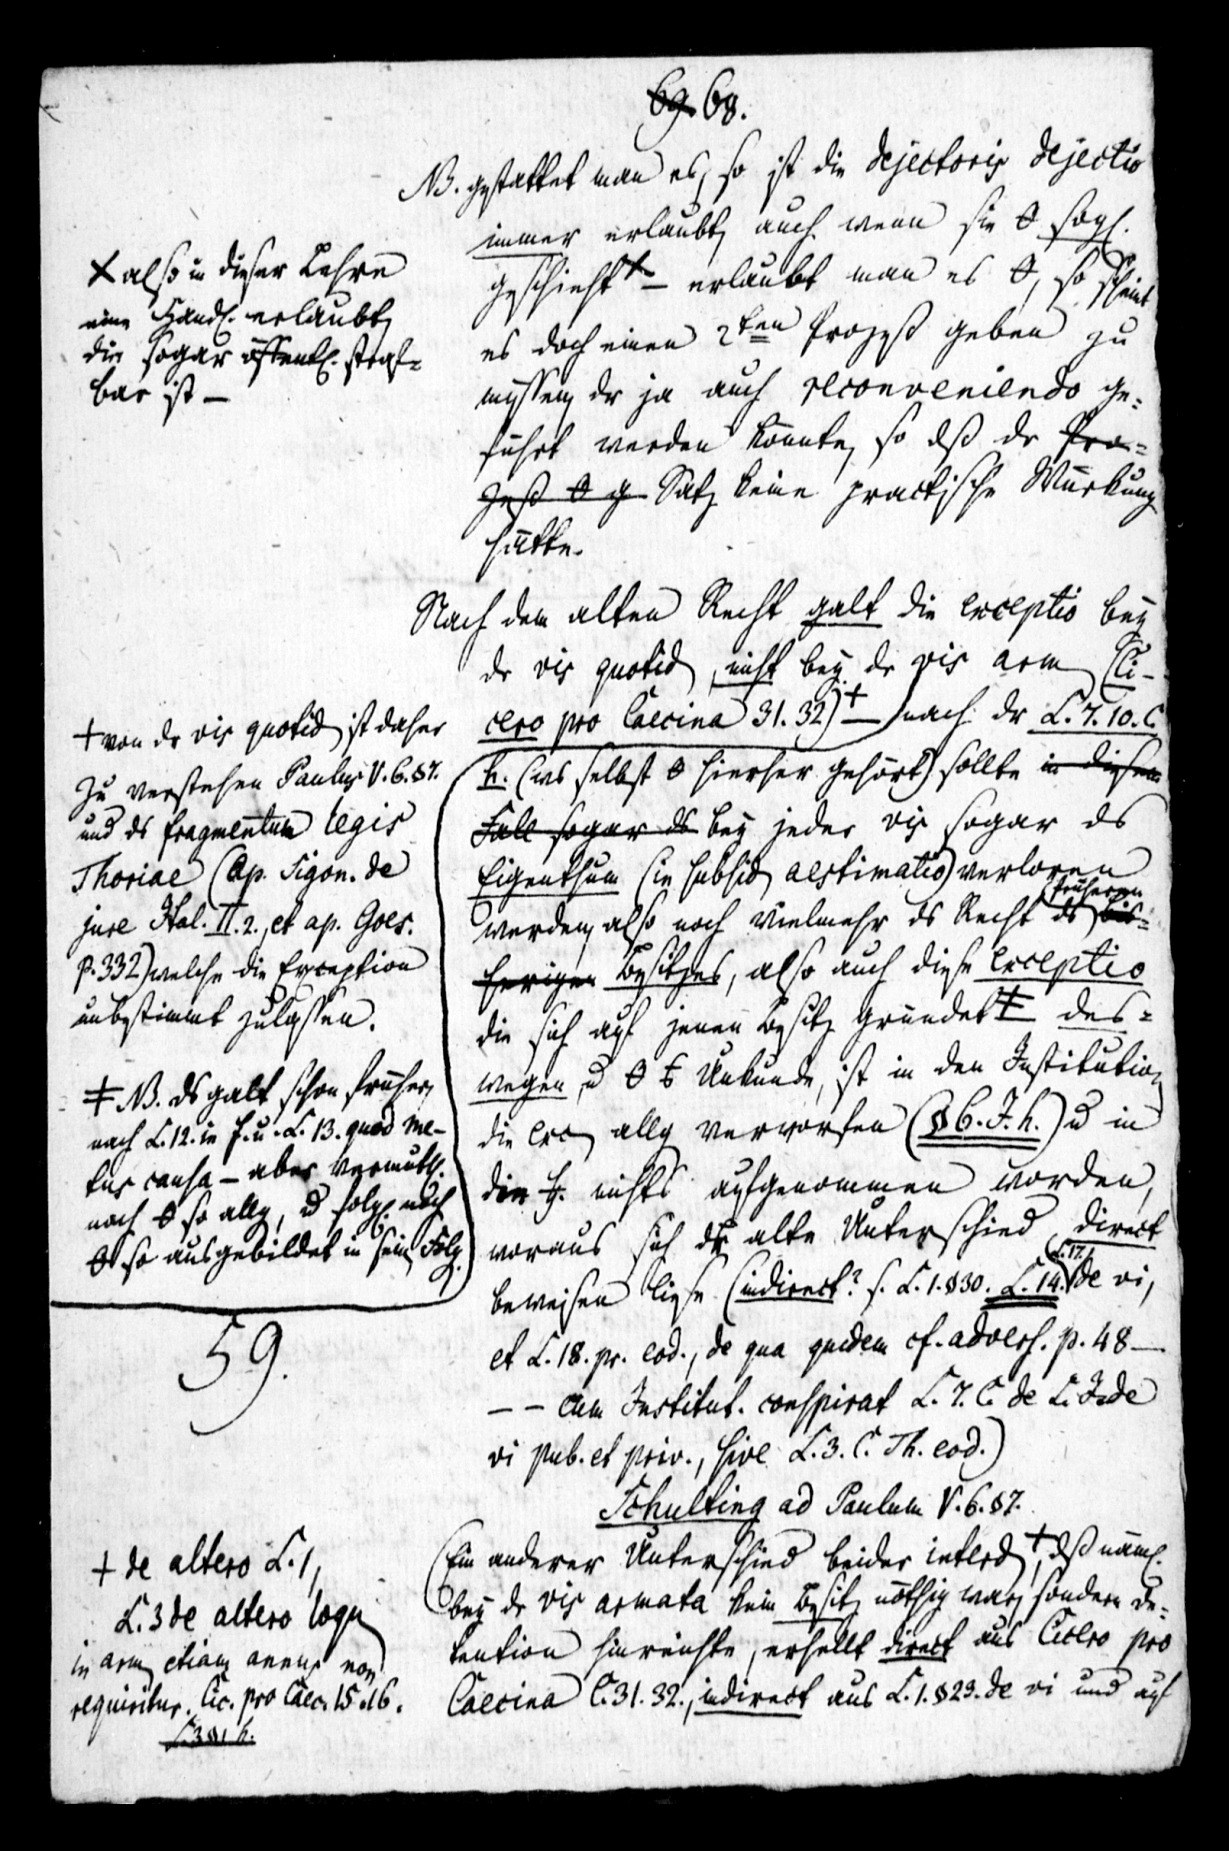 69 68.
NB. gestattet man es, so ist die dejectoris dejectio
immer erlaubt, auch wenn sie 0 sogl.
geschieht + — erlaubt man es 0, so scheint
es doch einen 2ten Prozeß geben zu
müssen, dr ja auch reconveniendo ge=
führt werden könnte, so dß dr Pro=
zeß 0 Satz keine practische Würkung
hätte.
+ also in dieser Lehre
eine Handl. erlaubt,
die sogar öffentl. straf=
bar ist —
Nach dem alten Recht galt die exceptio bey
dr vis quotid, nicht bey dr vis arm (Ci-
cero pro Caecina 31. 32) + — nach dr L. 7. 10. C
h. (ws selbst 0 hierher gehört) sollte in diesem
Fall sogar ds bey jeder vis sogar ds
Eigenthum (in subsid, aestimatio) verloren
werden, also noch vielmehr ds Recht ds früheren bis=
herigen Besitzes, also auch diese exceptio
die sich auf jenen Besitz gründet ‡ des=
wegen, u 0 Unkunde, ist in den Institution,
die exc, allg verworfen (§ 6. J. h.) u in
den nichts aufgenommen worden,
woraus sich dr alte Unterschied direct
beweisen liese (indirect? s. L. 1. § 30. L. 14. L. 17. de vi,
et L. 18. pr. eod., de qua quidem cf. advers. p. 48 —
— — cum Institut. conspirat L. 7. C. de L. J. de
vi pub. et priv., sive L. 3. C. Th. eod.)
Schulting ad Paulum V. 6. § 7.
+ von dr vis quotid, ist daher
zu verstehen Paulus V. 6. § 7.
und ds fragmentum legis
Thoriae (ap. Sigon. de
jure Ital. II. 2., et ap. Goes.
p. 332) welche die Exception
unbestimmt zulassen.
‡ NB. ds galt schon früher,
nach L. 12. in f. u. L. 13. quod me-
tus causa — aber vermuthl.
noch 0 so allg, u folgl. noch
0 so ausgebildet in sein Folg.
59.
(Ein anderer Unterschied beider interd, +, dß näml.
bey dr vis armata kein Besitz nöthig war, sondern de=
tention hinreichte, erhellt direct aus Cicero pro
Caecina C. 31. 32., indirect aus L. 1. § 23. de vi und auf
+ de altero L. 1,
L. 3 de altero loqu
in arm, etiam annus non
requiritur. Cic. pro Caec. 15. 16.
L. 3 § 1 h.